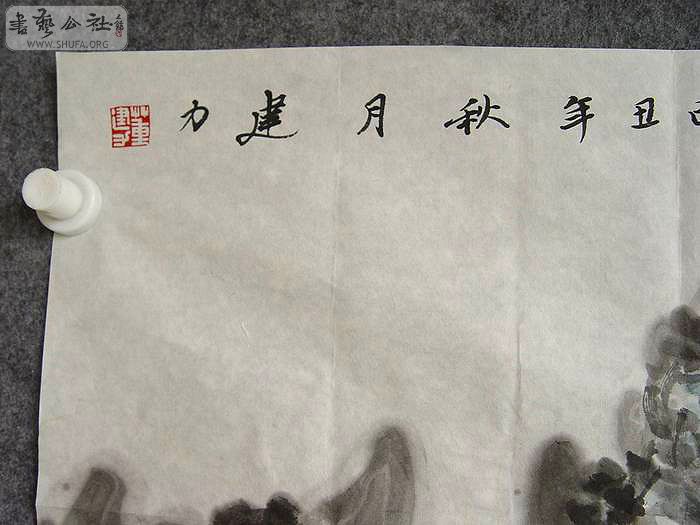 書藝公社
WWW.SHUFA.ORG
己丑年秋月建力
董建力